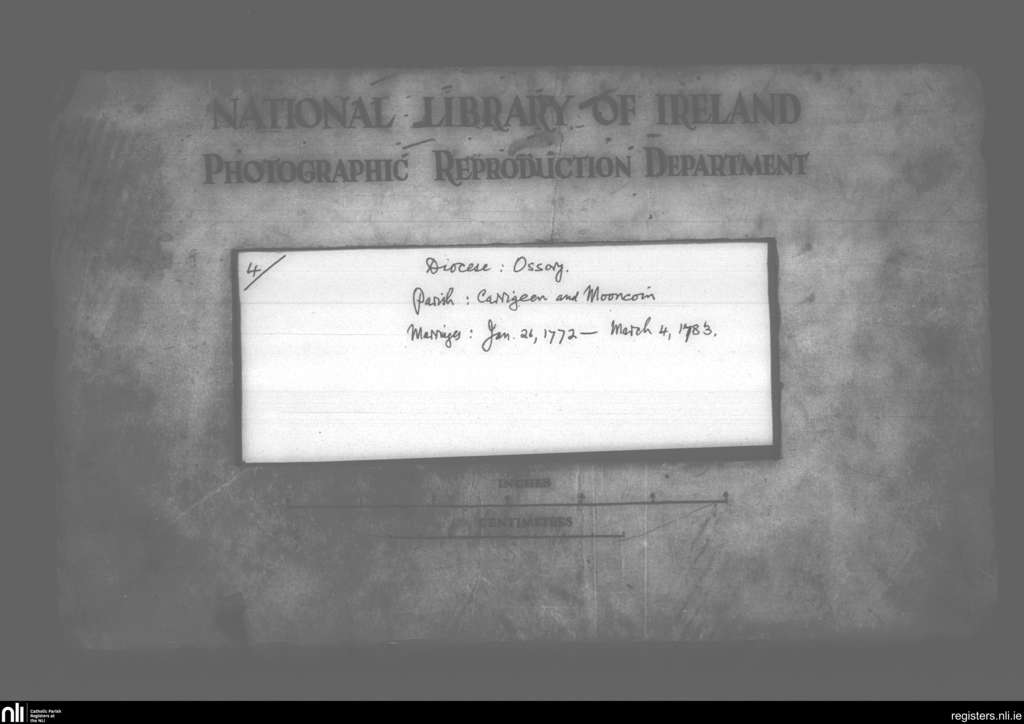 NATIONAL LIBRARY OF IRELAND
PHOTOGRAPHIC REPRODUCTION DEPARTMENT
4/
Diocese : Ossory.
Parish : Carrigeen and Mooncoin
Marriages : Jan. 26, 1772 — March 4, 1783.
INCHES
CENTIMETRES
nli
Catholic Parish
Registers at
the NLI
registers.nli.ie